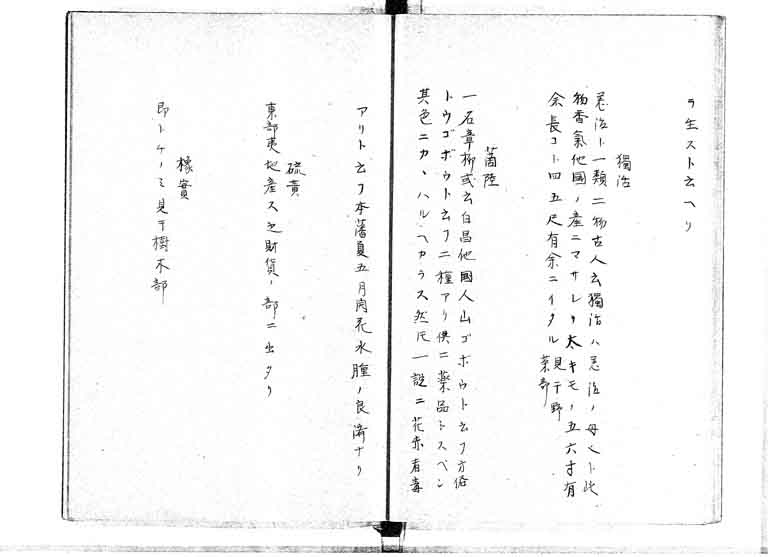 ラ生スト云ヘリ
獨活
羌活ト一類二物古人云獨活ハ羌活ノ母也ト此
物香氣他國ノ産ニマサレリ太キモノ五六寸有
余長コト四五尺有余ニイタル見于野菜部
商陸
一名章柳或云白昌他國人山ゴボウト云フ方俗
トウゴボウト云フ二種アリ倶ニ藥品トスベシ
其色ニカヽハルヘカラス然氏一説ニ花赤者毒
アリト云フ本藩夏五月開花水腫ノ良済ナリ
硫黄
東部夷地産ス之財貨ノ部ニ出タリ
橡實
即トチノミ見于樹木部